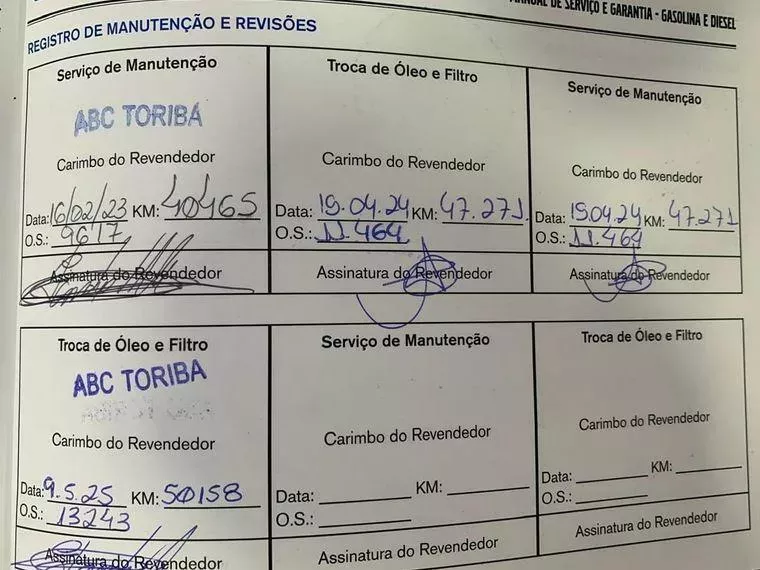 MANUAL DE SERVIÇO E GARANTIA - GASOLINA E DIESEL
REGISTRO DE MANUTENÇÃO E REVISÕES
Serviço de Manutenção
ABC TORIBA
Carimbo do Revendedor
Data: 16/02/23 KM: 40465
O.S.: 9617
Assinatura do Revendedor
Troca de Óleo e Filtro
Carimbo do Revendedor
Data: 19.04.24 KM: 47.271
O.S.: 11.464
Assinatura do Revendedor
Serviço de Manutenção
Carimbo do Revendedor
Data: 19.04.24 KM: 47.271
O.S.: 11.464
Assinatura do Revendedor
Troca de Óleo e Filtro
ABC TORIBA
Carimbo do Revendedor
Data: 9.5.25 KM: 50158
O.S.: 13243
Assinatura do Revendedor
Serviço de Manutenção
Carimbo do Revendedor
Data: KM:
O.S.:
Assinatura do Revendedor
Troca de Óleo e Filtro
Carimbo do Revendedor
Data: KM:
O.S.:
Assinatura do Revendedor